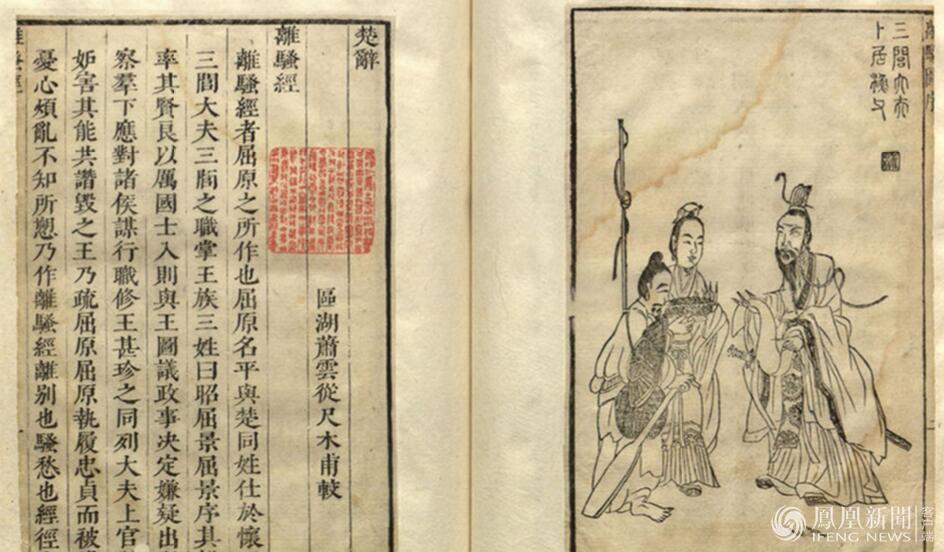 三閭大夫
卜居漁父
楚辭
離騷經
區湖蕭雲從尺木甫較
離騷經者屈原之所作也屈原名平與楚同姓仕於懷
三閭大夫三閭之職掌王族三姓曰昭屈景屈景序其
率其賢良以厲國士入則與王圖議政事決定嫌疑出
察羣下應對諸侯謀行職修王甚珍之同列大夫上官
妬害其能共譖毀之王乃疏屈原屈原執履忠貞而被
憂心煩亂不知所愬乃作離騷經離别也騷愁也經徑
鳳凰新聞
客户端
IFENG NEWS